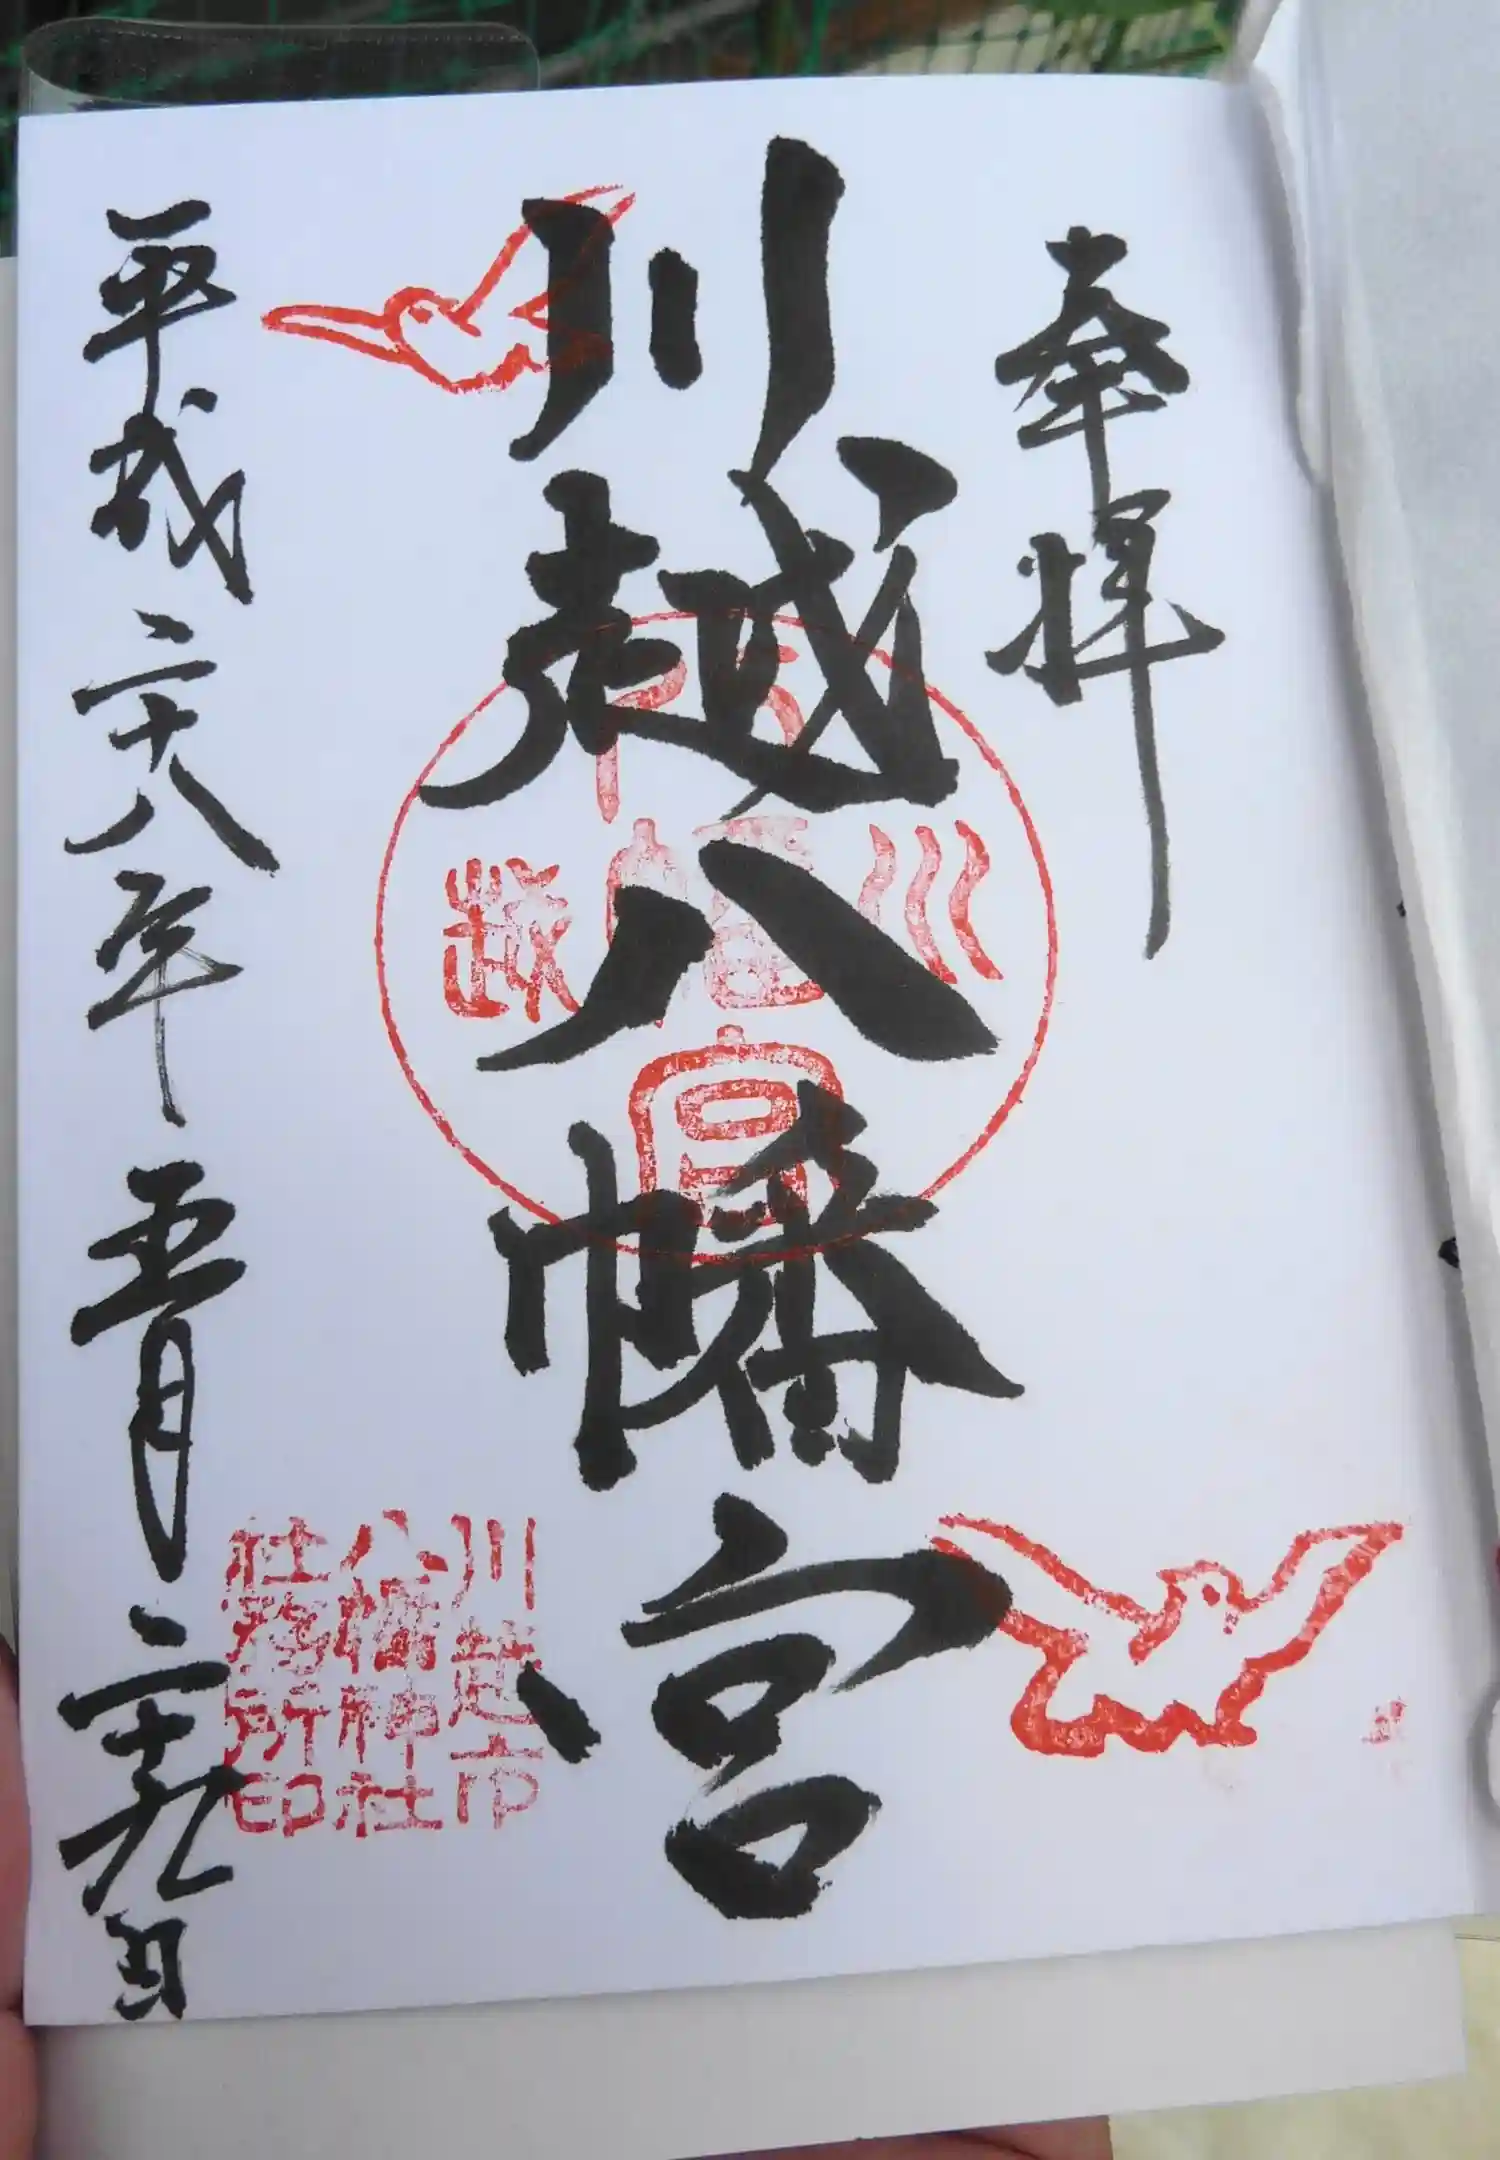 奉拝
川越八幡宮
平成二十八年五月二十九日
川越
八幡
宮
川越市
八幡神社
社務所印